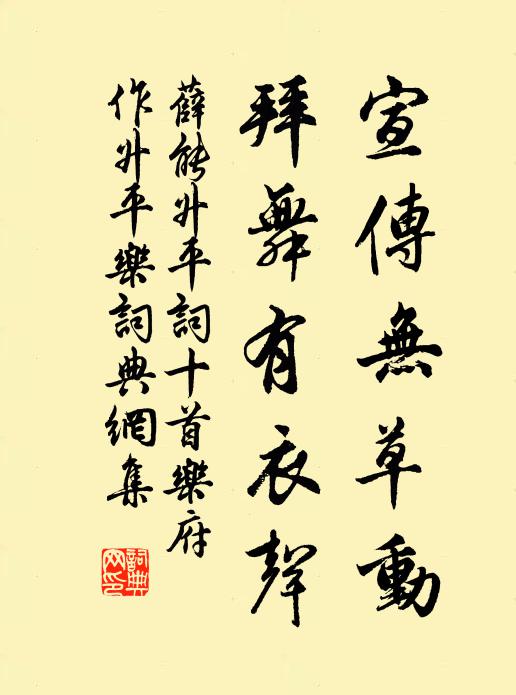 宣傳無草動
拜舞有衣聲
薛能升平詞十首樂府
作升平樂詞典網集
詞典網印